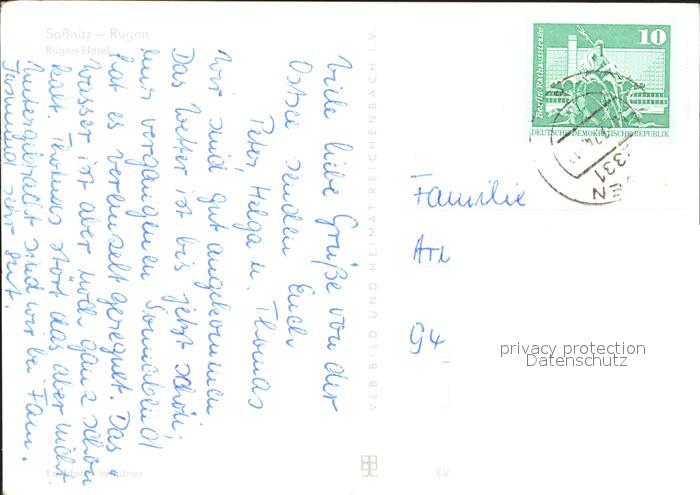 Saßnitz – Rügen
Rügen-Hotel
Viele liebe Grüße von der
Ostsee senden Euch
Peter, Helga u. Thomas
Wir sind gut angekommen
Das Wetter ist bis jetzt schön,
nur vergangenen Sonnabend
hat es vereinzelt geregnet. Das
Wasser ist aber noch ganz schön
kalt. Thomas stört das aber nicht
Untergebracht sind wir bei Fam.
sehr gut.
VEB BILD UND HEIMAT REICHENBACH I. V.
Berlin Rathausstraße
10
DEUTSCHE DEMOKRATISCHE REPUBLIK
2331
Familie
94
privacy protection
Datenschutz
EV